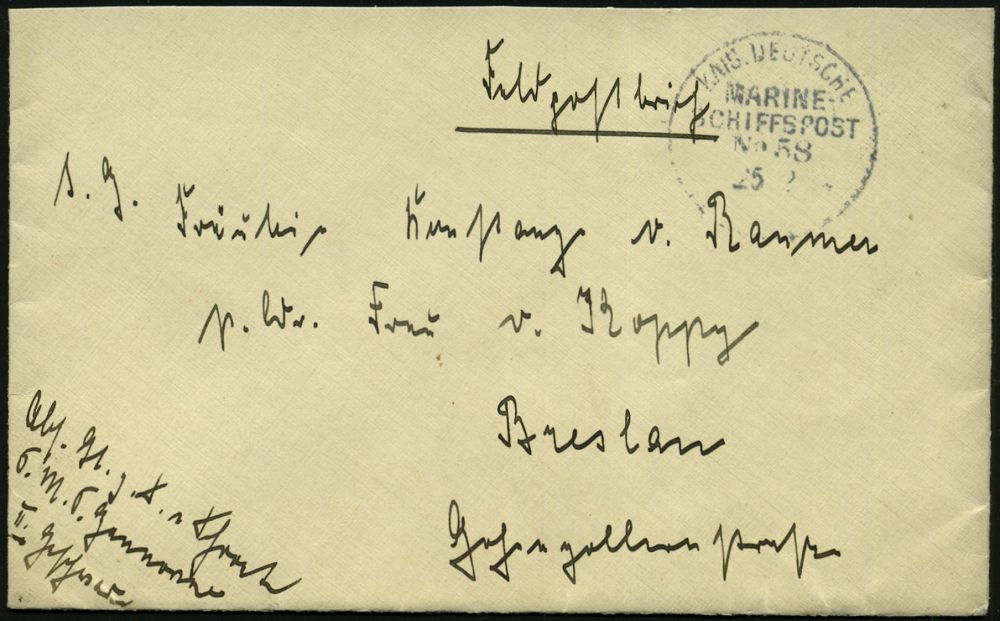 Feldpostbrief
KAIS. DEUTSCHE
MARINE-
SCHIFFSPOST
No 58
25 2
Fräulein Konstanze v. Raumer
p. Adr. Frau v. Koppy
Breslau
Hohenzollernstraße
Abs.
S.M.S. Hannover
II. Geschwader